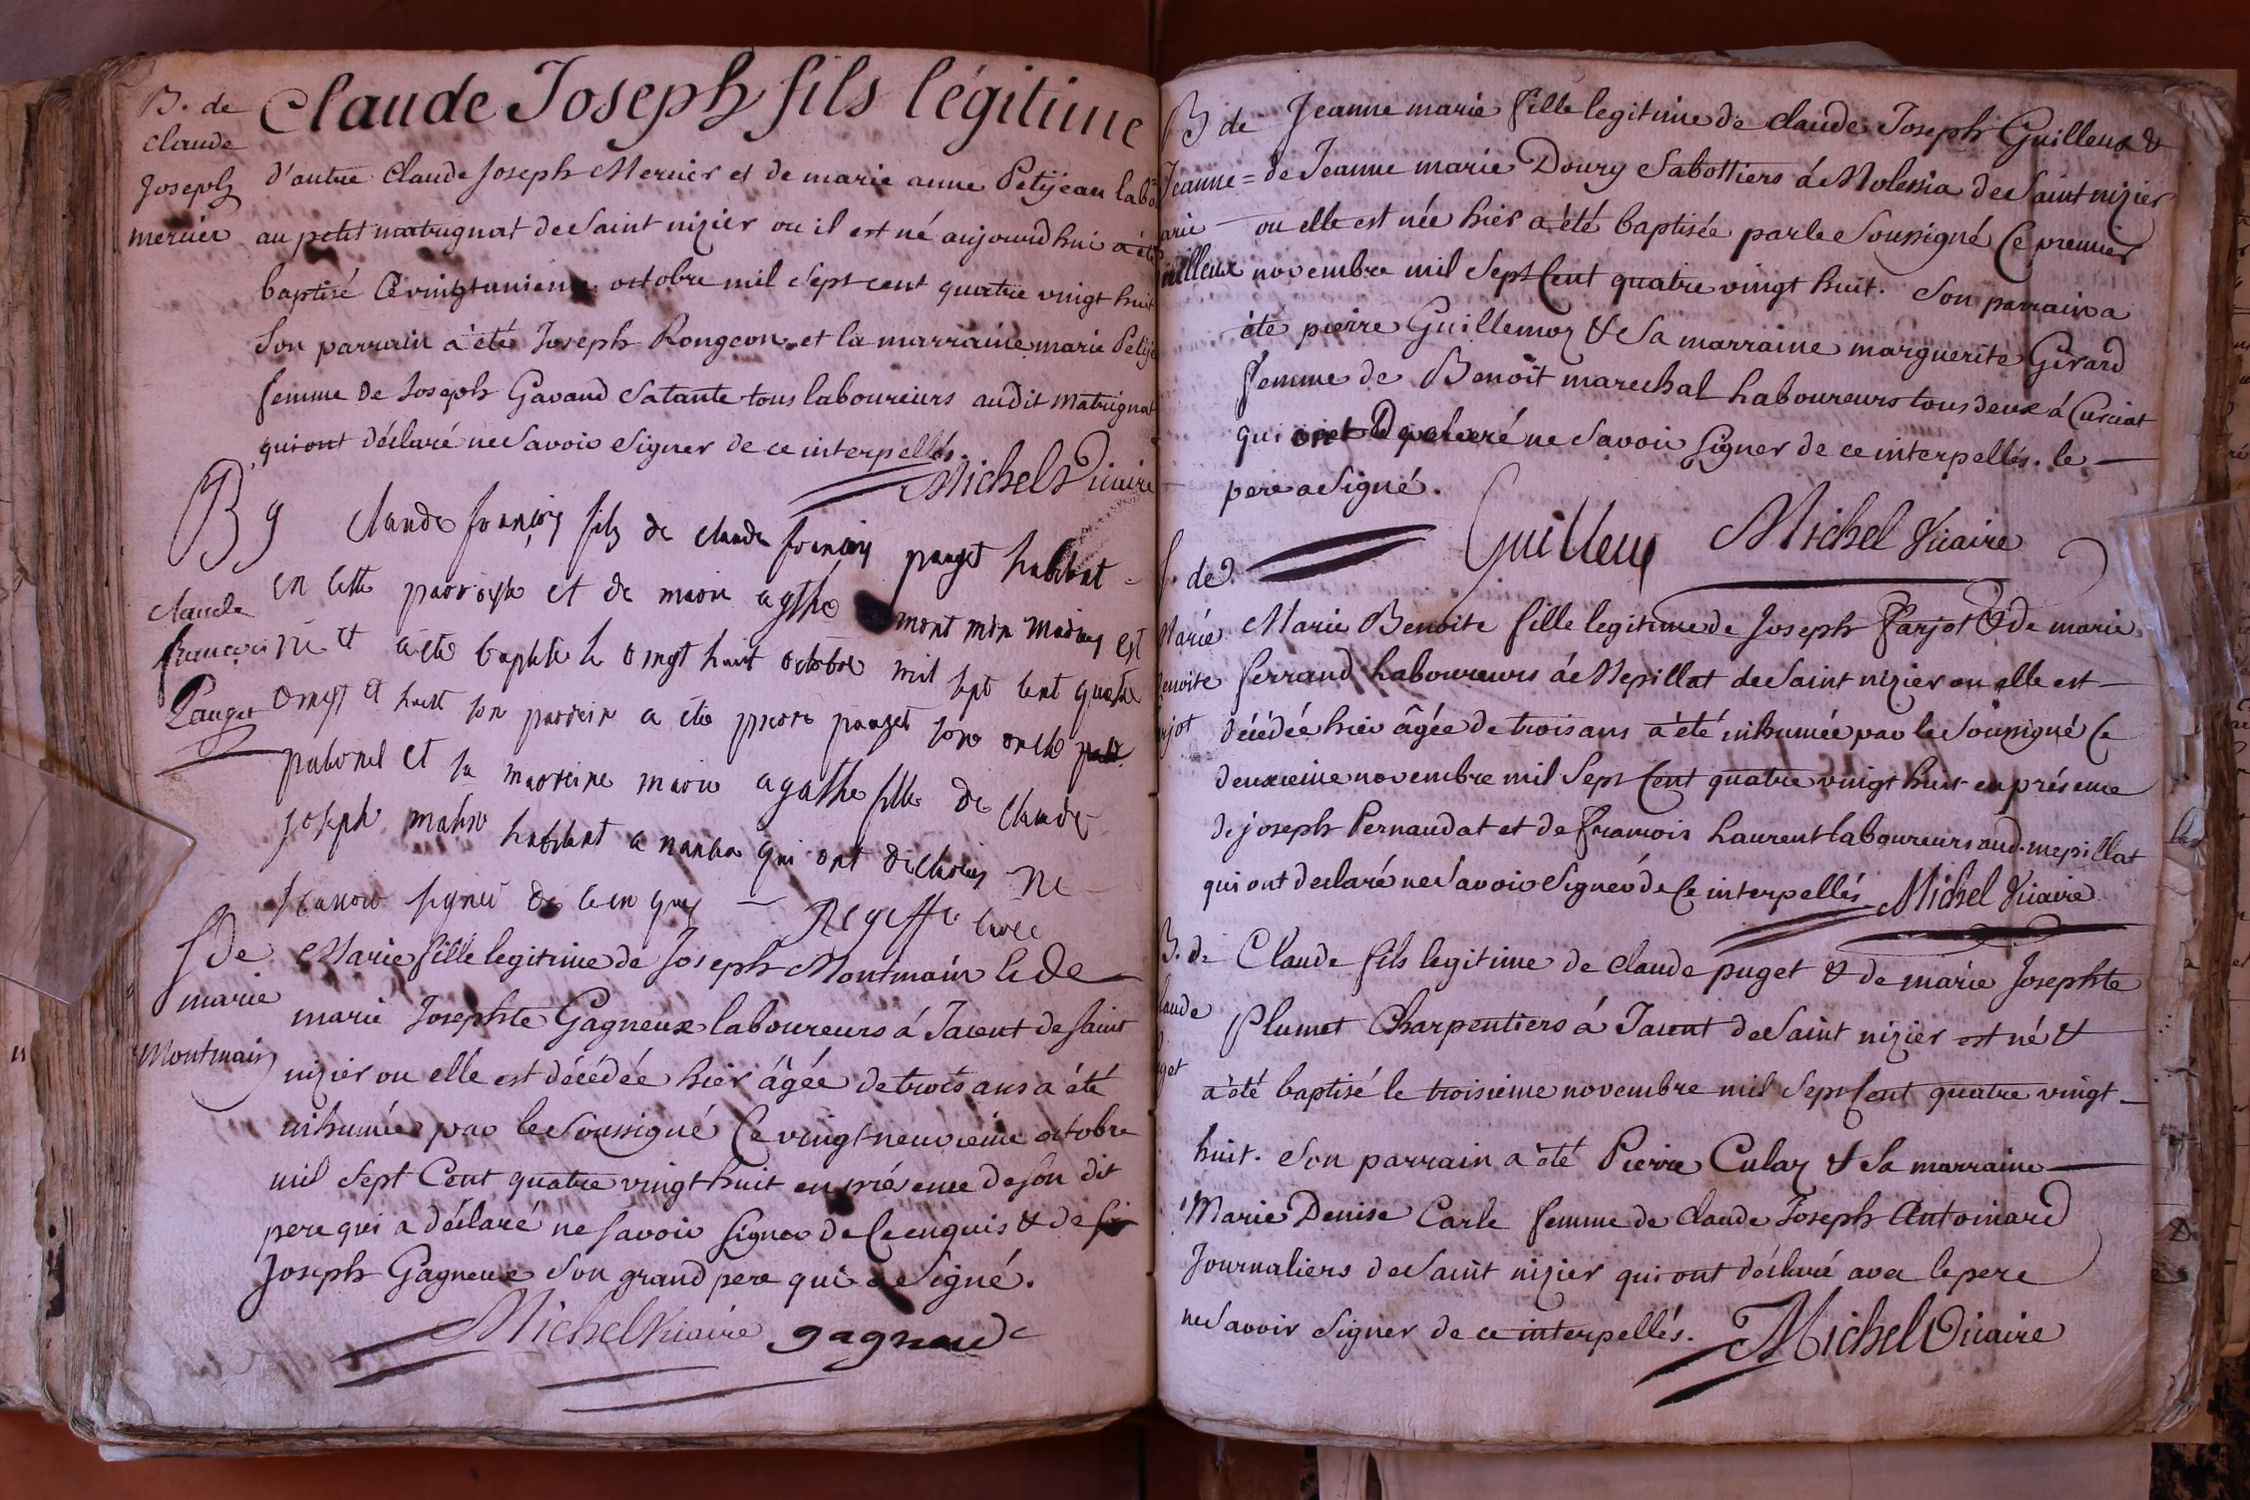 B. de
claude
Joseph
mercier
Claude Joseph fils légitime
d'autre Claude Joseph Mercier et de marie anne Petijean labo
au petit matrignat de Saint nizier ou il est né aujourdhui a été
baptisé Ce vingtunieme octobre mil Sept cent quatre vingt huit
Son parrain a été Joseph Rongeon et la marraine marie Petije
femme de Joseph Gavand Satante tous laboureurs audit matrignat
qui ont déclaré ne Savoir Signer de ce interpellés.
Michel Vicaire
B
claude
françois
Pauget
claude françois fils de claude françois pauget habitant
en cette parroisse et de marie agthe mont min est
né et a été baptisé le vingt huit octobre mil sept cent quatre
vingt et huit son parrein a été pierre pauget son oncle
paternel et sa marreine marie agathe fille de claude
joseph habitant a qui ont ne
scavoir signer de ce en quis
S De
marie
Montmain
Marie fille legitime de Joseph Montmain & De
marie Josephte Gagneux laboureurs á Jaient de Saint
nizier ou elle est décédée hier âgée de trois ans a été
inhumée par le Soussigné Ce vingt neuvieme octobre
mil Sept Cent quatre vingt huit en présence de Son dit
pere qui a déclaré ne Savoir Signer de Ce enquis & de
Joseph Gagneux Son grand pere qui a Signé.
Michel Vicaire gagneux
B de
Jeanne=
arie
uilleux
Jeanne marie fille legitime de claude Joseph Guilleux &
de Jeanne marie Doury Sabottiers á Molessia de Saint nizier
ou elle est née hier a été baptisée par le Soussigné Ce premier
novembre mil Sept Cent quatre vingt huit. Son parrain a
été pierre Guillemoz & Sa marraine marguerite Gerard
femme de Benoît marechal Laboureurs tous deux á Curciat
qui ont ne Savoir Signer de ce interpellés. le
pere a Signé.
Guilleux Michel Vicaire
S. de
Marie
enoite
rjot
Marie Benoite fille legitime de Joseph Farjot & de marie
ferrand Laboureurs á Mepillat de Saint nizier ou elle est
décédée hier âgée de trois ans a été inhumée par le Soussigné Ce
deuxieme novembre mil Sept Cent quatre vingt huit en présence
de joseph Pernaudat et de francois Laurent laboureurs aud. mepillat
qui ont declaré ne Savoir Signer de Ce interpellés Michel Vicaire
B. de
laude
get
Claude fils legitime de claude puget & de marie Josephte
Plumet Charpentiers á Jaient de Saint nizier est né &
a été baptisé le troisieme novembre mil Sept Cent quatre vingt
huit. Son parrain a été Pierre Culaz & Sa marraine
Marie Denise Carle femme de Claude Joseph Antoinard
Journaliers de Saint nizier qui ont déclaré avec le pere
ne Savoir Signer de ce interpellés. Michel Vicaire